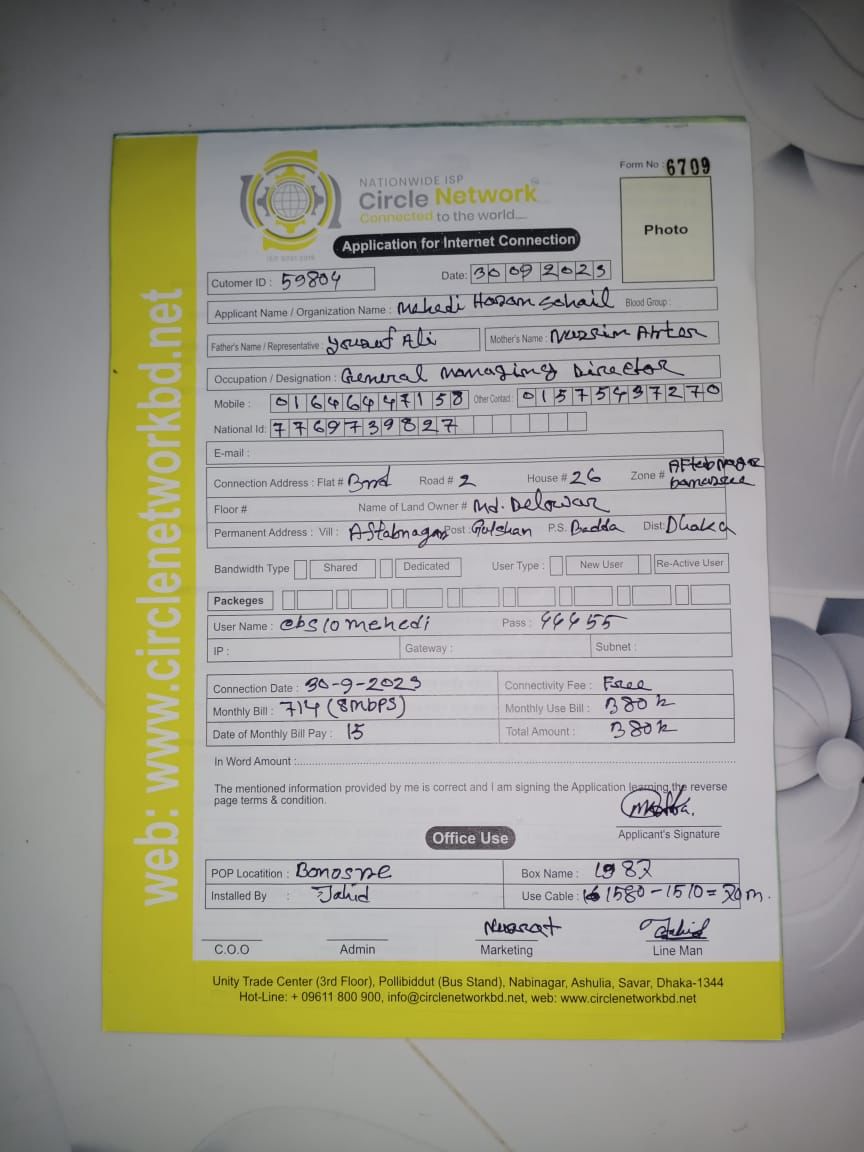 NATIONWIDE ISP
Circle Network
Connected to the world....
Form No : 6709
Photo
Application for Internet Connection
Cutomer ID : 59804 Date: 30 09 2023
Applicant Name / Organization Name : Mehedi Hasan Sohail Blood Group :
Father's Name / Representative : Yousuf Ali Mother's Name :
Occupation / Designation : General Managing Director
Mobile : 01646447158 Other Contact : 01575497270
National Id: 7769739827
E-mail :
Connection Address : Flat # Road # 2 House # 26 Zone # Aftabnagar
Floor # Name of Land Owner # Md. Delowar
Permanent Address : Vill : Aftabnagar Post : Gulshan P.S. Badda Dist: Dhaka
Bandwidth Type Shared Dedicated User Type : New User Re-Active User
Packeges
User Name : cbs10mehedi Pass : 44455
IP : Gateway : Subnet :
Connection Date : 30-9-2023 Connectivity Fee : Free
Monthly Bill : 714 (8Mbps) Monthly Use Bill :
Date of Monthly Bill Pay : 15 Total Amount :
In Word Amount :
The mentioned information provided by me is correct and I am signing the Application learning the reverse
page terms & condition.
Applicant's Signature
Office Use
POP Locatition : Box Name : 1987
Installed By : Jahid Use Cable : 1580-1510=70m.
Nusrat Jahid
C.O.O Admin Marketing Line Man
Unity Trade Center (3rd Floor), Pollibiddut (Bus Stand), Nabinagar, Ashulia, Savar, Dhaka-1344
Hot-Line: + 09611 800 900, info@circlenetworkbd.net, web: www.circlenetworkbd.net
web: www.circlenetworkbd.net